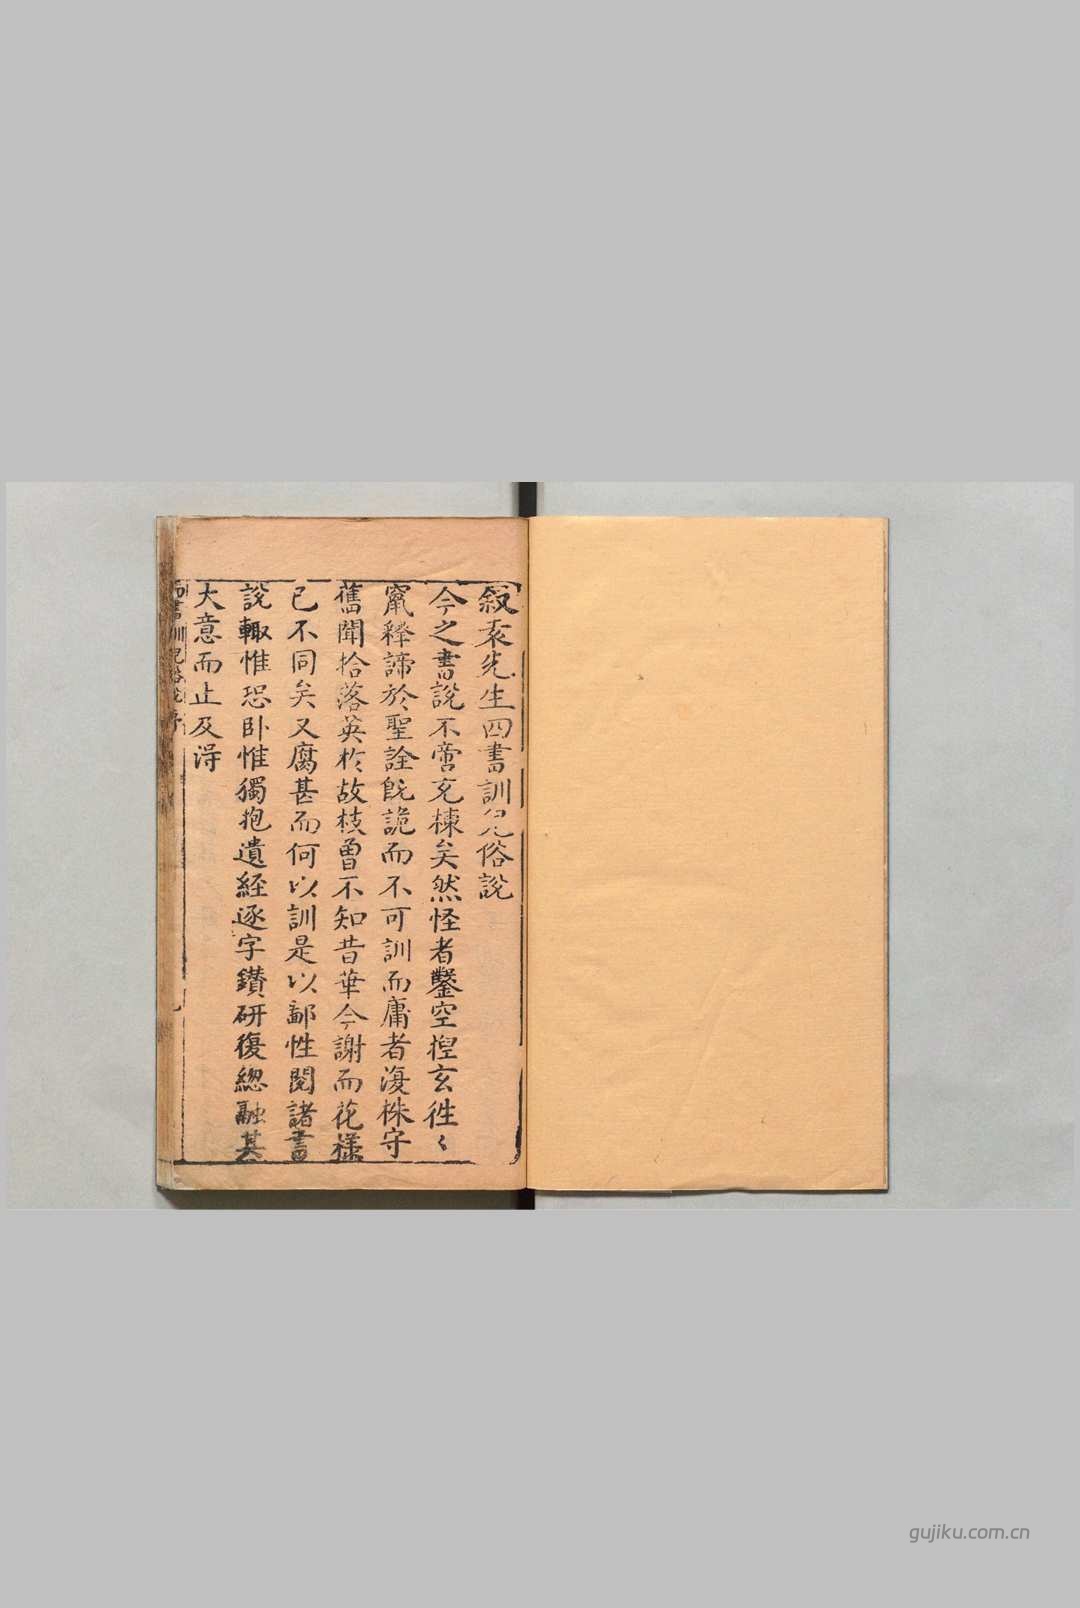 叙袁先生四書訓兒俗說
今之書說不啻充棟矣然怪者鑿空揑玄徃〻
竄釋諦於聖詮旣詭而不可訓而庸者復株守
舊聞拾落英於故枝曾不知昔華今謝而花樣
已不同矣又腐甚而何以訓是以鄙性閱諸書
說輙惟恐卧惟獨抱遺經逐字鑚研復緫融其
大意而止及淂
四書訓兒俗說序
gujiku.com.cn